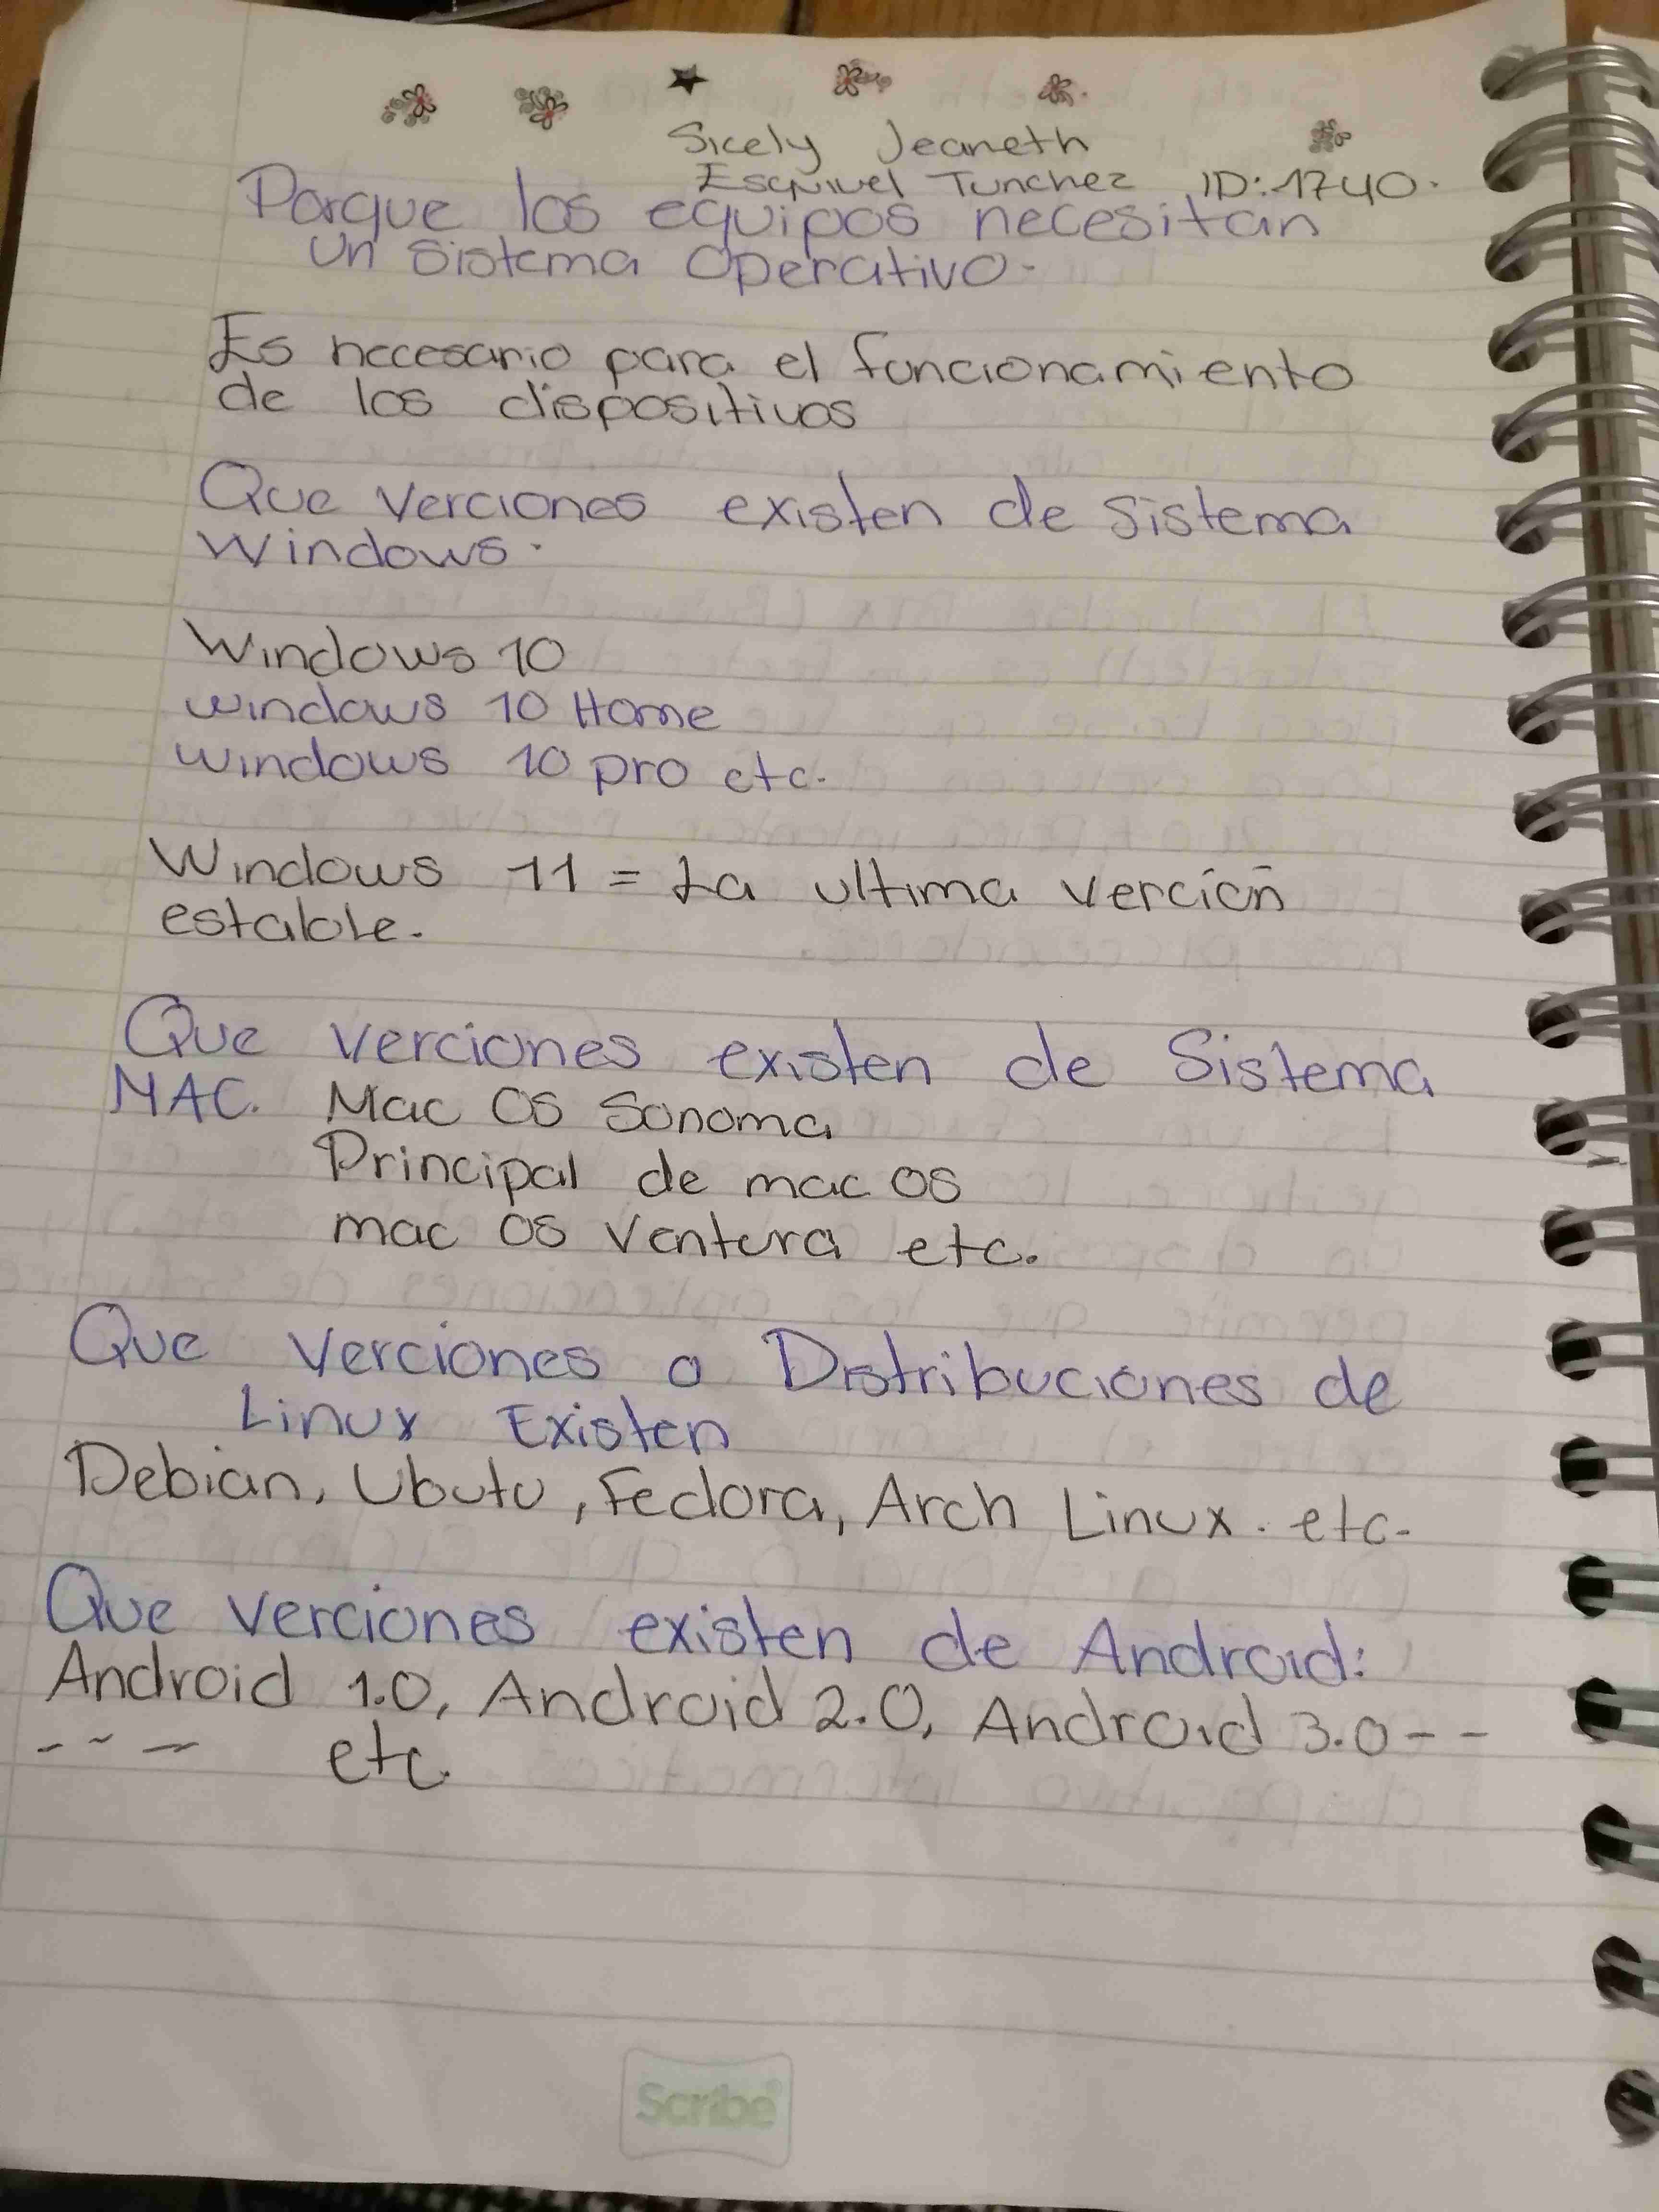 Sicely Jeaneth
Esquivel Tunchez ID:1740.
Porque los equipos necesitan
un sistema Operativo.
Es necesario para el funcionamiento
de los dispositivos
Que Verciones existen de sistema
Windows.
Windows 10
windows 10 Home
windows 10 pro etc.
Windows 11 = La ultima verción
estable.
Que Verciones existen de Sistema
MAC. Mac OS Sonoma
Principal de mac OS
mac OS Ventura etc.
Que Verciones o Distribuciones de
Linux Existen
Debian, Ubutu, Fedora, Arch Linux. etc.
Que Verciones existen de Android:
Android 1.0, Android 2.0, Android 3.0 - -
- - - etc.
Scribe